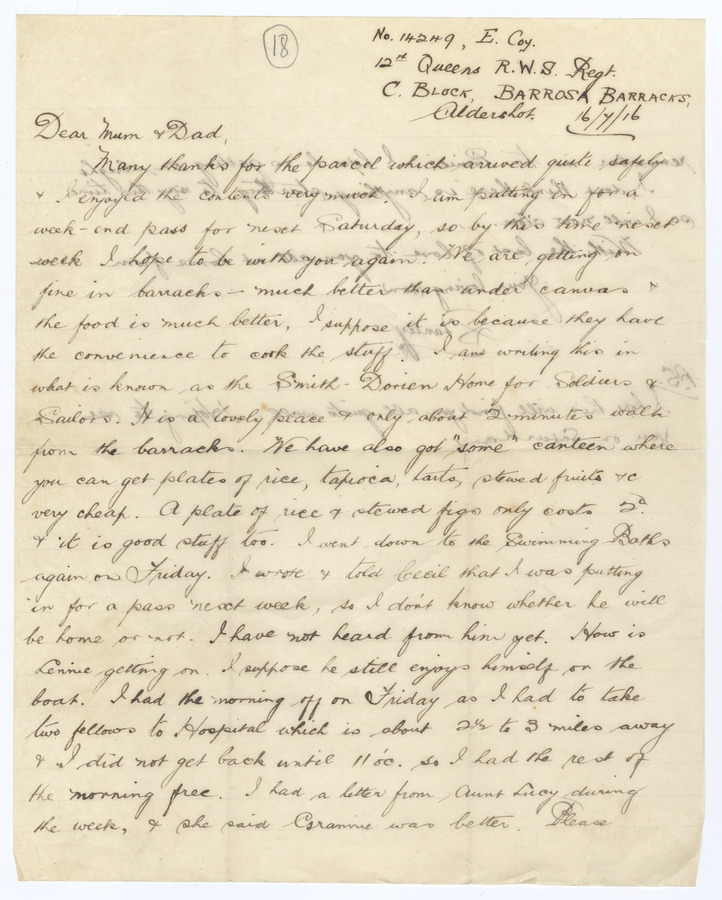 18
No. 14249, E. Coy.
12th Queens R.W.S. Regt.
C. Block, Barrosa Barracks,
Aldershot. 16/7/16
Dear Mum & Dad,
Many thanks for the parcel which arrived quite safely
& I enjoyed the contents very much. I am putting in for a
week-end pass for next Saturday, so by this time next
week I hope to be with you again. We are getting on
fine in barracks - much better than under canvas &
the food is much better, I suppose it is because they have
the convenience to cook the stuff. I am writing this in
what is known as the Smith-Dorien Home for Soldiers &
Sailors. It is a lovely place & only about 2 minutes walk
from the barracks. We have also got "some" canteen where
you can get plates of rice, tapioca, tarts, stewed fruits &c
very cheap. A plate of rice & stewed figs only costs 2d.
& it is good stuff too. I went down to the Swimming Baths
again on Friday. I wrote & told Cecil that I was putting
in for a pass next week, so I don't know whether he will
be home or not. I have not heard from him yet. How is
Lennie getting on. I suppose he still enjoys himself on the
boat. I had the morning off on Friday as I had to take
two fellows to Hospital which is about 2½ to 3 miles away
& I did not get back until 11 o'c. so I had the rest of
the morning free. I had a letter from Aunt Lucy during
the week, & she said Grannie was better. Please